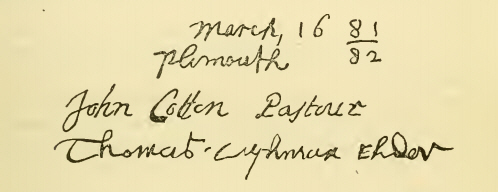 March, 16 81/82
Plimouth
John Cotton Pastour
Thomas Cushman Elder